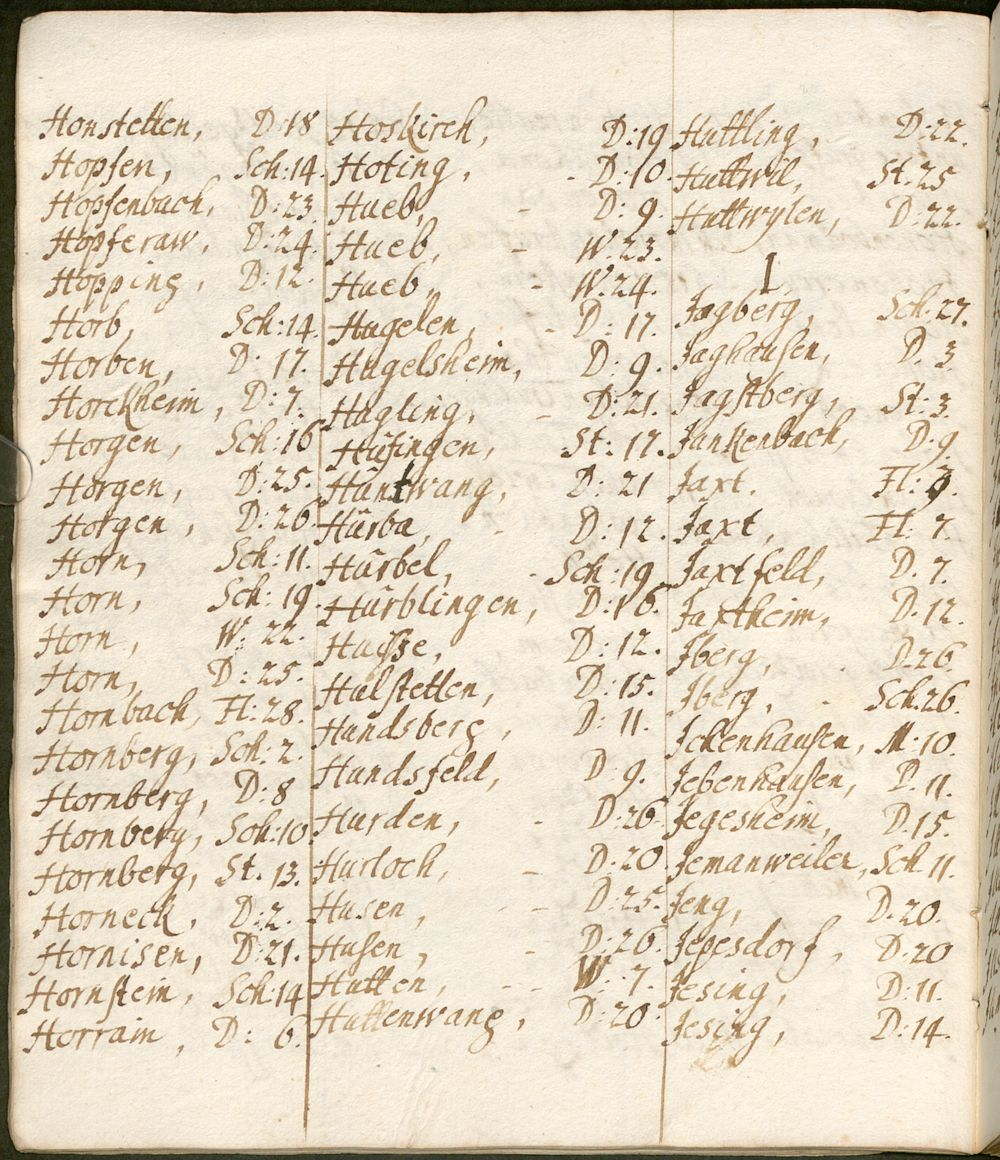 Honstetten, D:18
Hopfen, Sch:14.
Hopfenbach, D:23.
Hopferaw, D:24.
Hopping, D:12.
Horb, Sch:14.
Horben, D:17.
Horckheim, D:7.
Horgen, Sch:16
Horgen, D:25.
Horgen, D:26
Horn, Sch:11.
Horn, Sch:19.
Horn, W:22.
Horn, D:25.
Hornbach, Fl:28.
Hornberg, Sch:2.
Hornberg, D:8
Hornberg, Sch:10
Hornberg, St.13.
Horneck, D:2.
Hornisen, D:21.
Hornstein, Sch:14
Horrain, D:6.
Hoskirch, D:19
Hoting, - D:10.
Hueb, - D:9.
Hueb, - W:23.
Hueb, - W:24.
Hugelen, - D:17.
Hugelsheim, D:9.
Hugling, - D:21.
Hüfingen, St:17.
Hüntwang, D:21
Hürba, - D:12.
Hürbel, - Sch:19.
Hürblingen, D:16.
D:12.
Hulstetten, D:15.
Hundsberg, D:11.
Hundsfeld, D:9.
Hurden, - D:26
Hurloch, - D:20
Husen, - - D:25.
Husen, - D:26
Hutten, - - W:7.
Huttenwang, D:20
Huttling, D:22.
Huttwil, St.25
Huttwylen, D:22.
I
Jagberg, Sch:27.
Jaghausen, D.3
Jagstberg, St:3.
Jankenbach, D.9
Jaxt. Fl:3.
Jaxt, Fl:7.
Jaxtfeld, D.7.
Jaxtheim, D.12.
Jberg, D.26
Jberg, - Sch.26.
Jckenhausen, M:10.
Jebenhausen, D.11.
Jegesheim, D.15.
Jemanweiler, Sch.11.
Jeng, D.20.
Jepesdorf, D:20
Jesing, D:11.
Jesing, D:14.